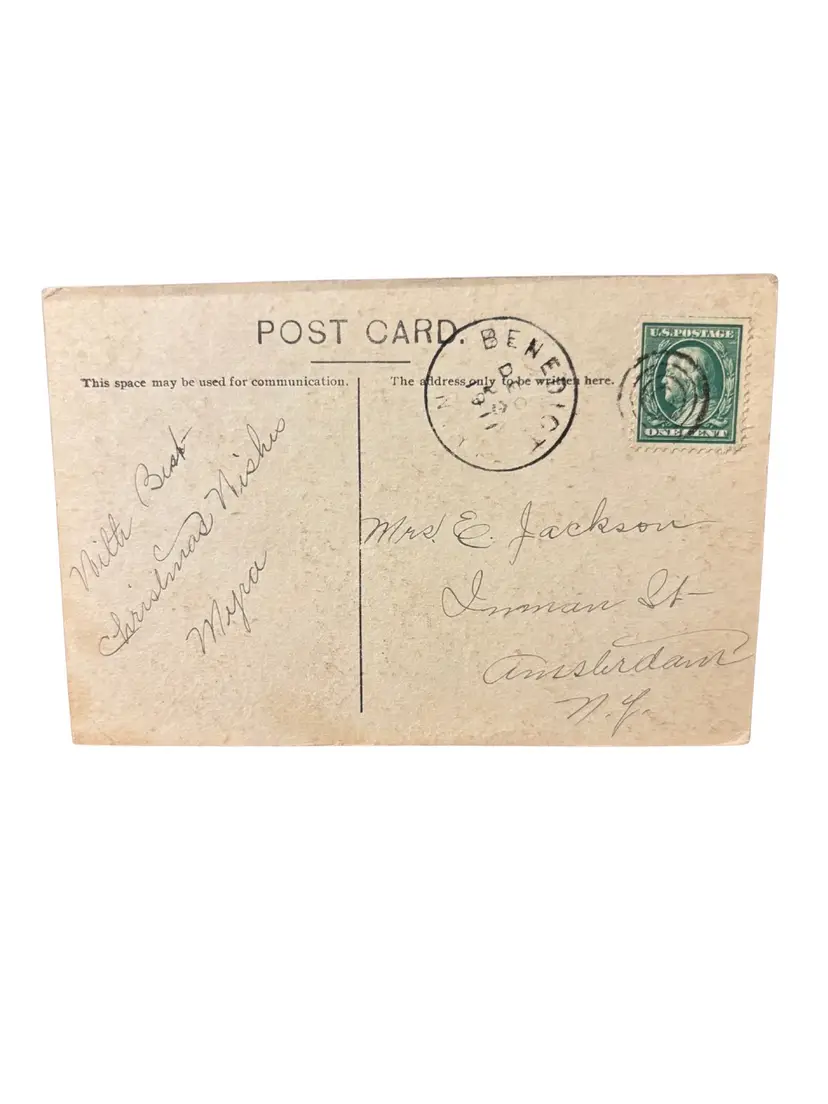 POST CARD.
This space may be used for communication.
The address only to be written here.
BENEDICT
N
U.S. POSTAGE
ONE CENT
With Best
Christmas Wishes
Myra
Mrs. E. Jackson
Inman St
Amsterdam
N.Y.